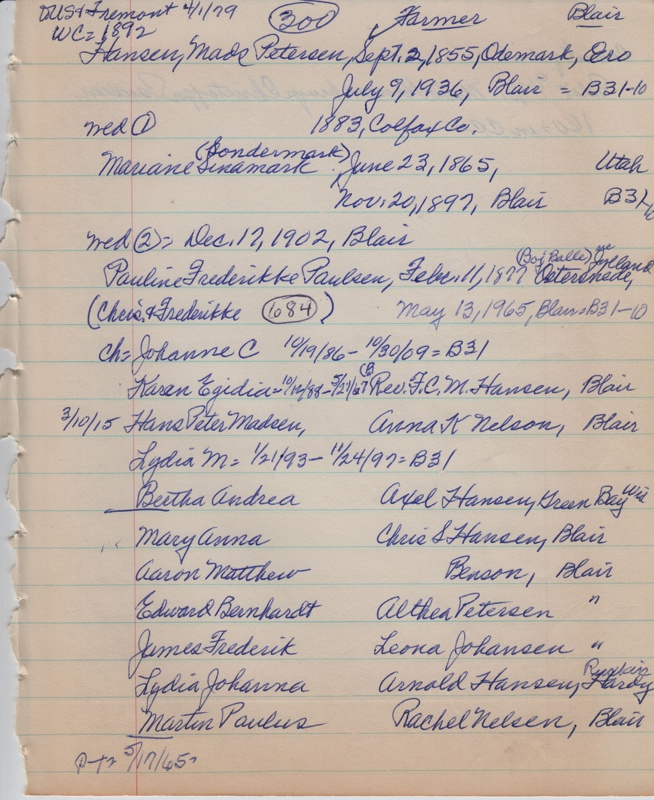 DUS & Fremont 4/1/79 (300) Farmer Blair
WC = 1892
Hansen, Mads Petersen, Sept. 2, 1855, Odemark, Ero
July 9, 1936, Blair = B31-10
med ① 1883, Colfax Co.
(Sondermark)
Mariane Sinamark, June 23, 1865, Utah
Nov. 20, 1897, Blair B31-10
med ② = Dec. 17, 1902, Blair
Pauline Frederikke Paulsen, Febr. 11, 1877
(Chris. & Frederikke (684)) May 13, 1965, Blair = B31-10
ch = Johanne C 10/19/86 - 10/30/09 = B31
Karen Egidia = 10/12/88 - Rev. F. C. M. Hansen, Blair
3/10/15 Hans Peter Madsen, Anna K Nelson, Blair
Lydia M = 1/21/93 - 11/24/97 = B31
Bertha Andrea Axel Hansen, Green Bay Wis
Mary Anna Chris S Hansen, Blair
Aaron Matthew Benson, Blair
Edward Bernhardt Althea Petersen "
James Frederik Leona Johansen "
Lydia Johanna Arnold Hansen, Ruskin
Martin Paulus Rachel Nelsen, Blair
5/17/65